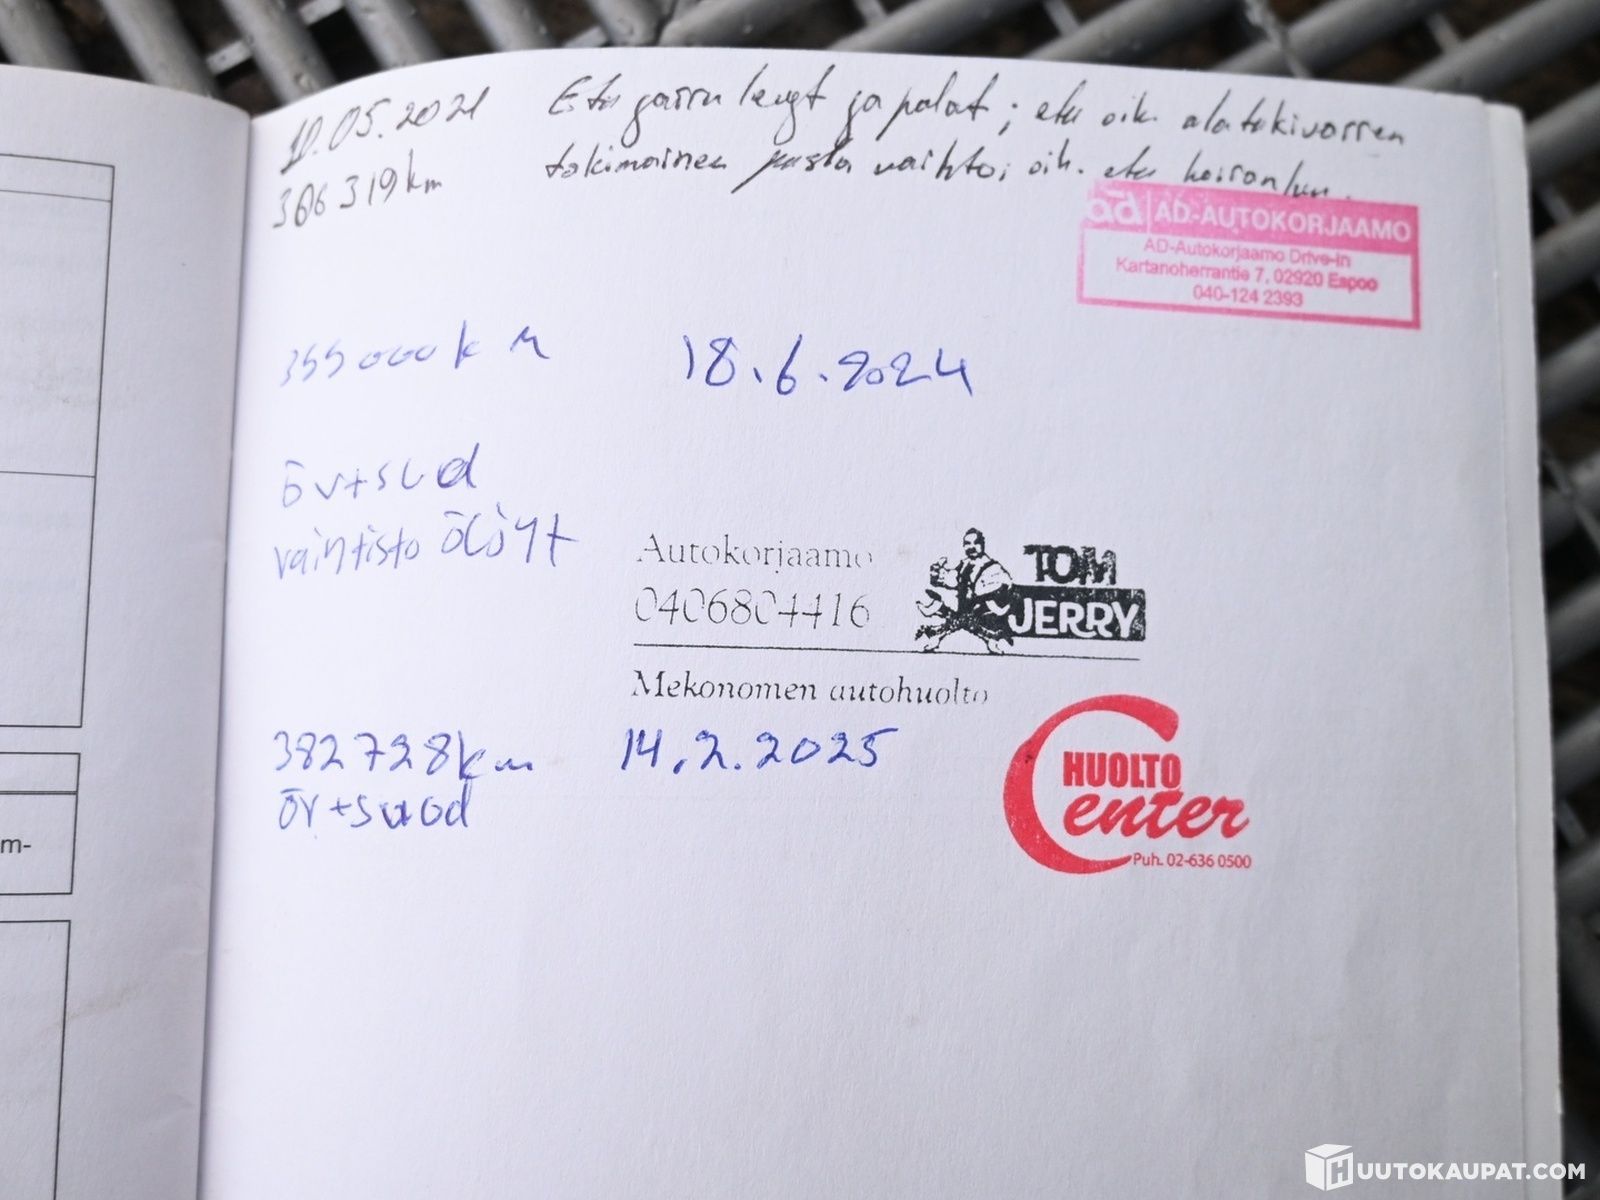 10.05.2021 Etu jarru levyt ja palat; etu oik. alatukivarren
306 319 km takimainen pusla vaihto; oik. etu
ad AD-AUTOKORJAAMO
AD-Autokorjaamo Drive-in
Kartanoherrantie 7, 02920 Espoo
040-124 2393
355 000 km 18.6.2024
öv+suod
vaihtisto ölöyt
Autokorjaamo
0406804416
TOM
JERRY
Mekonomen autohuolto
382 728 km 14.2.2025
öv+suod
HUOLTO
Center
Puh. 02-636 0500
m-
HUUTOKAUPAT.COM